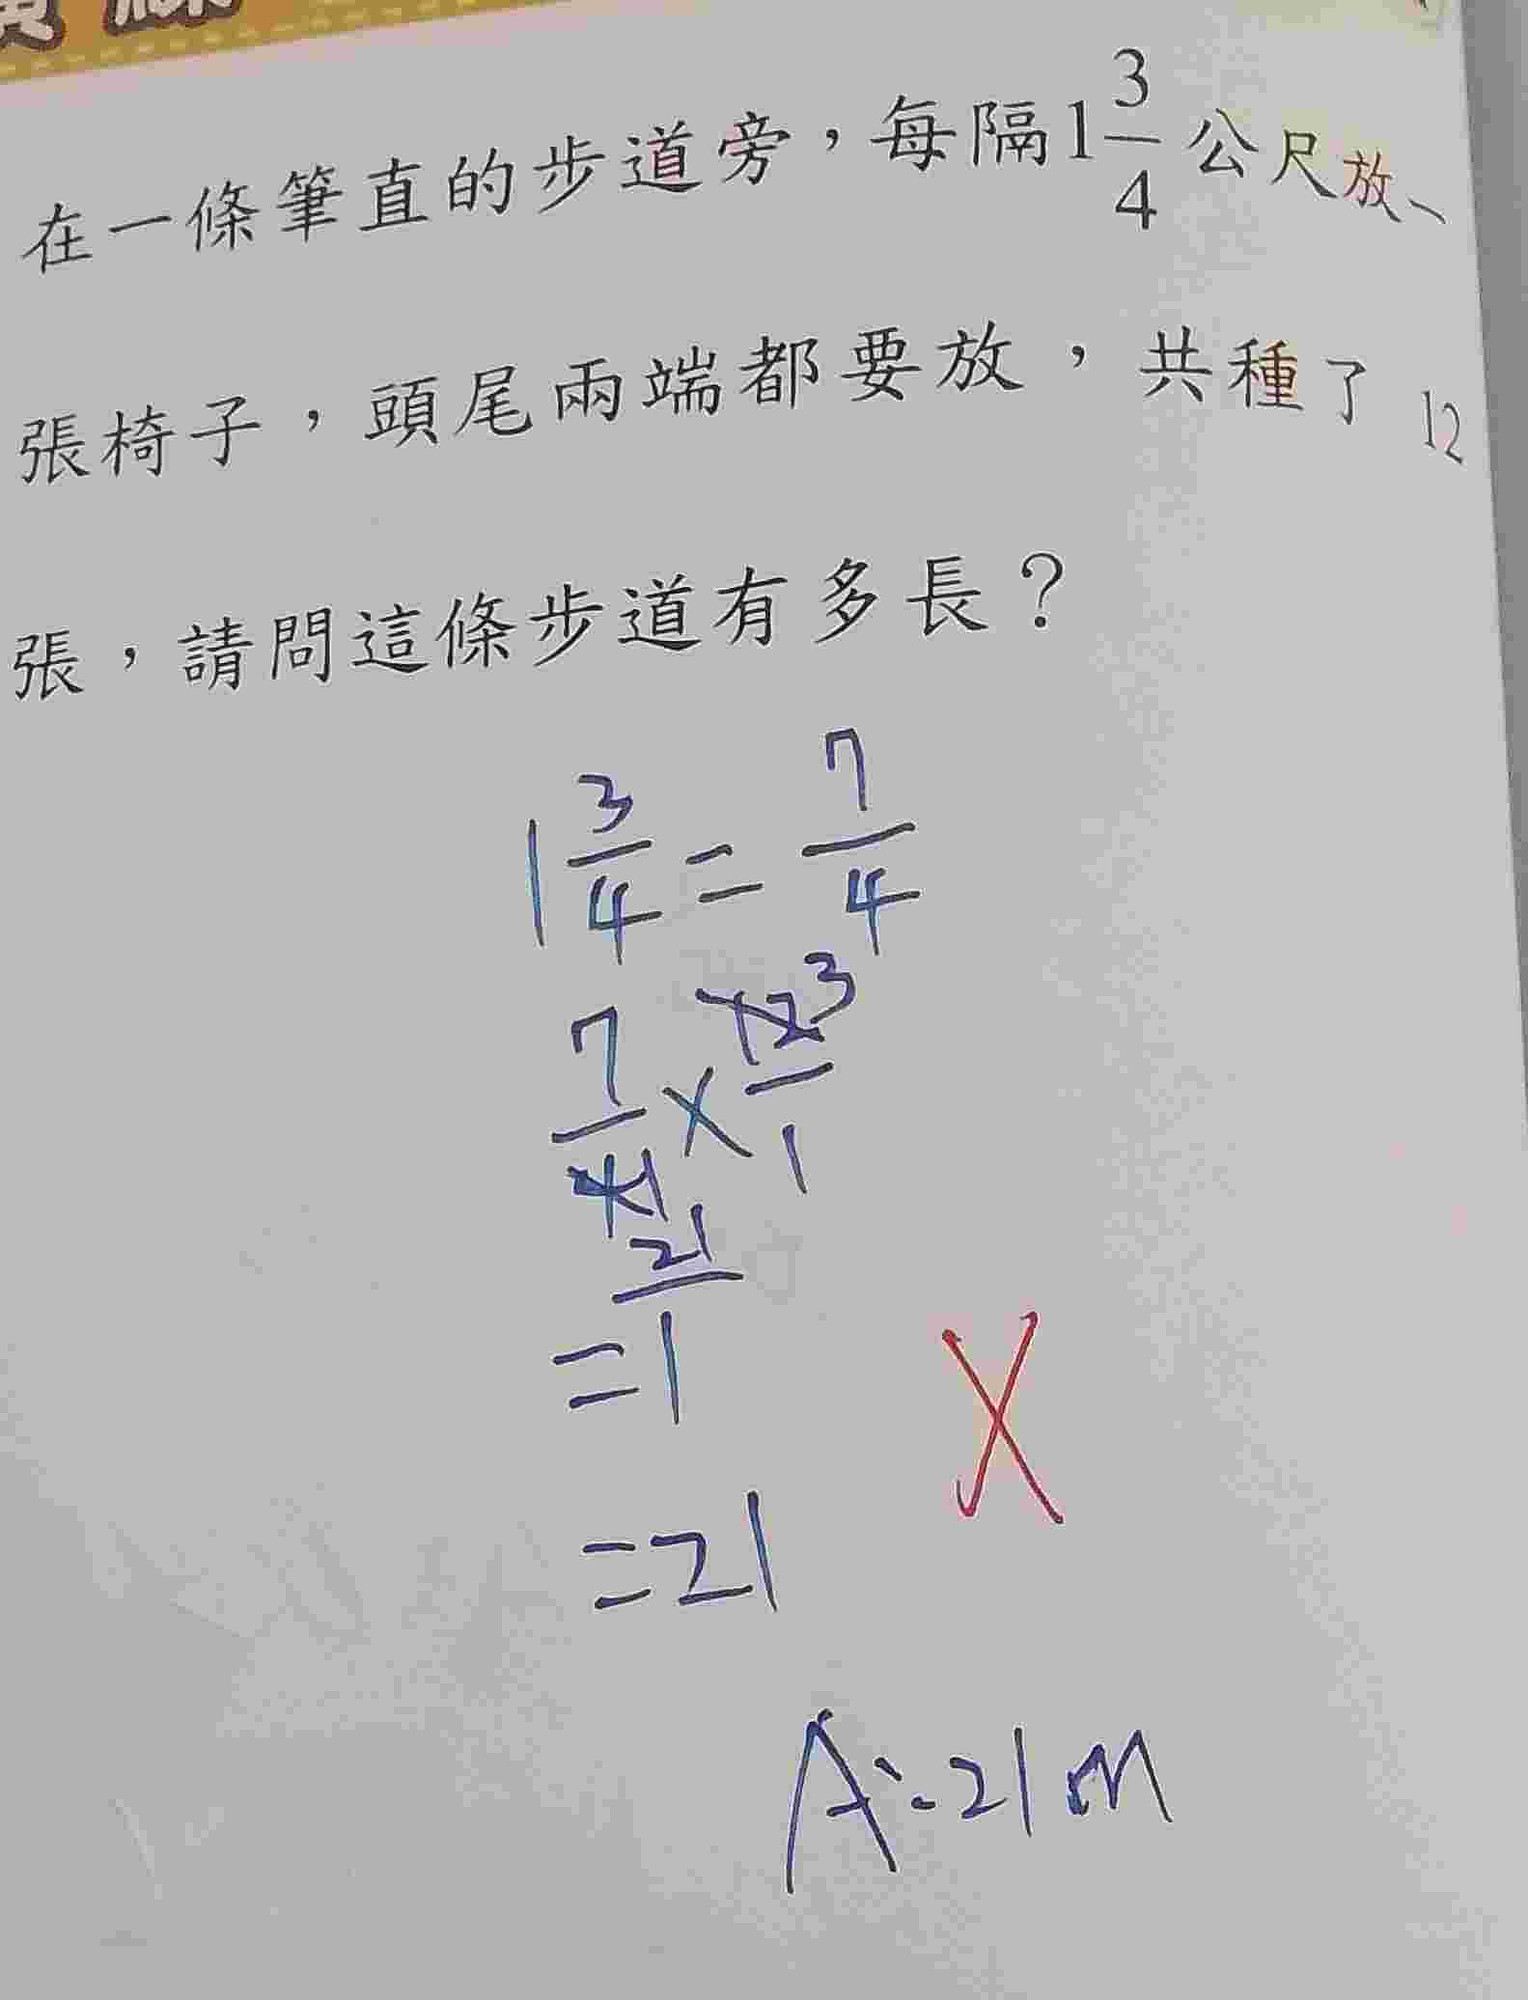 在一條筆直的步道旁，每隔1 3/4公尺放一
張椅子，頭尾兩端都要放，共種了12
張，請問這條步道有多長？
1 3/4 = 7/4
7/4 1 × 12 3/1
= 21/1
= 21
X
A: 21m